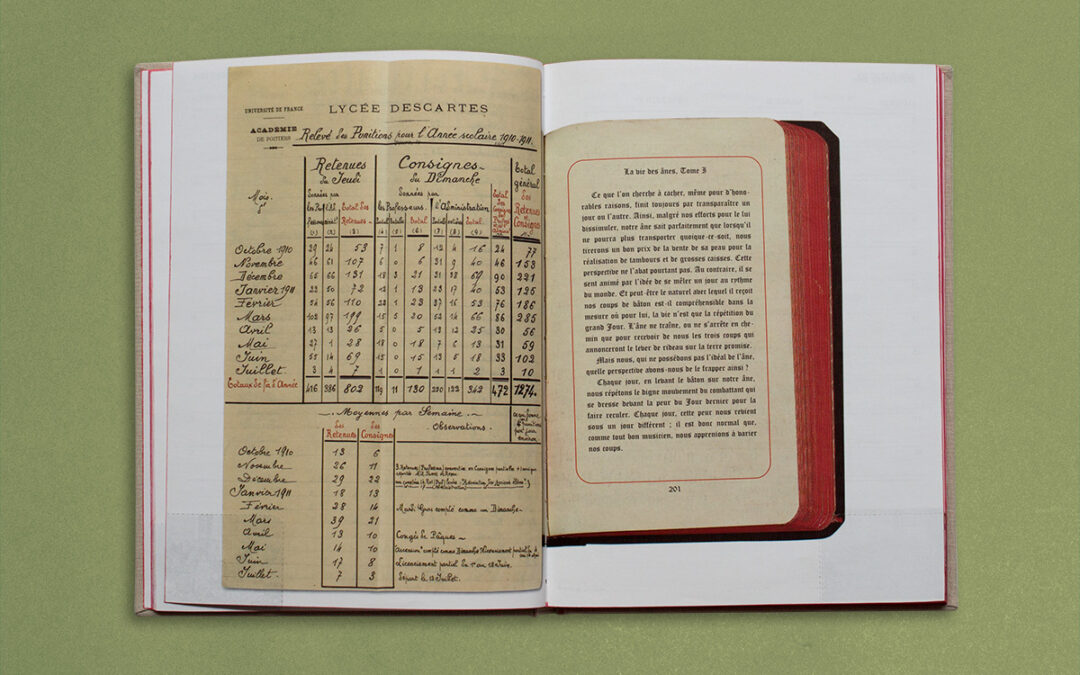 UNIVERSITÉ DE FRANCE
ACADÉMIE
DE POITIERS
LYCÉE DESCARTES
Relevé des Punitions pour l'Année scolaire 1910-1911.
Mois.
Retenues du Jeudi
Consignes du Dimanche
Total général des Retenues et Consignes
Données par
Total des Retenues
Données par
les Professeurs
l'Administration
Total
Total
Octobre 1910 29 24 53 7 1 8 12 4 16 24 77
Novembre 46 61 107 6 0 6 31 9 40 46 153
Décembre 65 66 131 18 3 21 31 38 69 90 221
Janvier 1911 22 50 72 12 1 13 23 17 40 53 125
Février 54 56 110 22 1 23 37 16 53 76 186
Mars 102 97 199 15 5 20 52 14 66 86 285
Avril 13 13 26 5 0 5 13 12 25 30 56
Mai 27 1 28 18 0 18 7 6 13 31 59
Juin 55 14 69 15 0 15 13 5 18 33 102
Juillet 3 4 7 1 0 1 1 1 2 3 10
Totaux de l'Année 416 386 802 119 11 130 220 122 342 472 1274.
Moyennes par Semaine
Les Retenues
Les Consignes
Observations.
Octobre 1910 13 6
Novembre 26 11
Décembre 29 22
Janvier 1911 18 13
Février 28 14 Mardi Gras compté comme un Dimanche
Mars 39 21
Avril 13 10 Congés de Pâques
Mai 14 10
Juin 17 8 Licenciement partiel du 1er au 18 Juin.
Juillet 7 3 Départ le 13 Juillet.
La vie des ânes, Tome I
Ce que l'on cherche à cacher, même pour d'hono-
rables raisons, finit toujours par transparaître un
jour ou l'autre. Ainsi, malgré nos efforts pour le lui
dissimuler, notre âne sait parfaitement que lorsqu'il
ne pourra plus transporter quoique-ce-soit, nous
tirerons un bon prix de la vente de sa peau pour la
réalisation de tambours et de grosses caisses. Cette
perspective ne l'abat pourtant pas. Au contraire, il se
sent animé par l'idée de se mêler un jour au rythme
du monde. Et peut être le naturel avec lequel il reçoit
nos coups de bâton est-il compréhensible dans la
mesure où pour lui, la vie n'est que la répétition du
grand Jour. L'âne ne traîne, ou ne s'arrête en che-
min que pour recevoir de nous les trois coups qui
annonceront le lever de rideau sur la terre promise.
Mais nous, qui ne possédons pas l'idéal de l'âne,
quelle perspective avons-nous de le frapper ainsi ?
Chaque jour, en levant le bâton sur notre âne,
nous répétons le digne mouvement du combattant qui
se dresse devant la peur du Jour dernier pour la
faire reculer. Chaque jour, cette peur nous revient
sous un jour différent ; il est donc normal que,
comme tout bon musicien, nous apprenions à varier
nos coups.
201